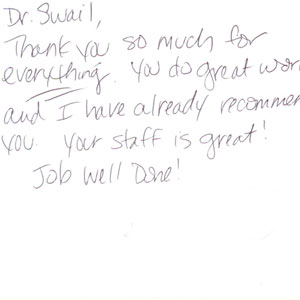 Dr. Swail,
Thank you so much for
everything. You do great wor
and I have already recommen
you. Your staff is great!
Job Well Done!